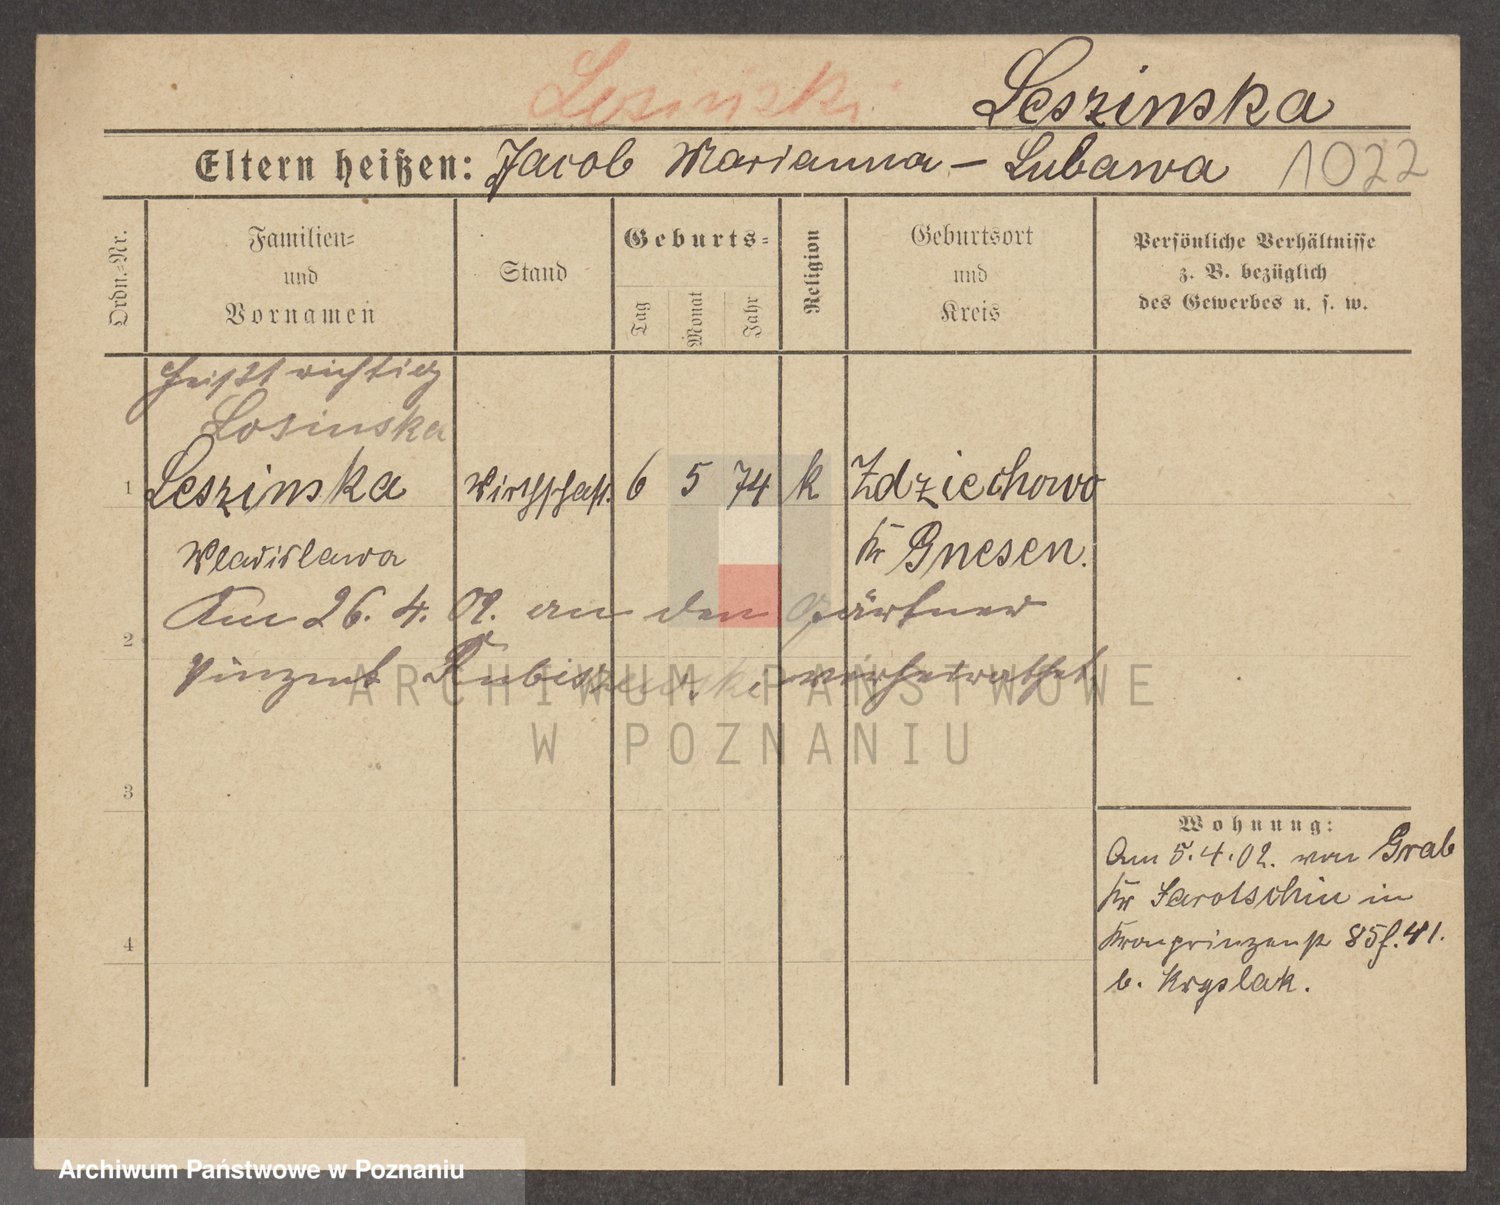 Losinski
Leszinska
Eltern heißen: Jacob Marianna – Lubawa 1022
Ordn.-Nr.
Familien-
und
Vornamen
Stand
Geburts-
Tag
Monat
Jahr
Religion
Geburtsort
und
Kreis
Persönliche Verhältnisse
z. B. bezüglich
des Gewerbes u. s. w.
heißt richtig
Losinska
1 Leszinska Wirthschaft. 6 5 74 k Zdziechowo
Wladislawa Kr Gnesen.
Am 26. 4. 09. an den Gärtner
2
Vinzent Kubiszewski verheirathet.
ARCHIWUM PAŃSTWOWE
W POZNANIU
3
Wohnung:
Am 5.4.02. von Grab
Kr Jarotschin in
Kronprinzenst 85f. 41.
4
b. Kryslak.
Archiwum Państwowe w Poznaniu